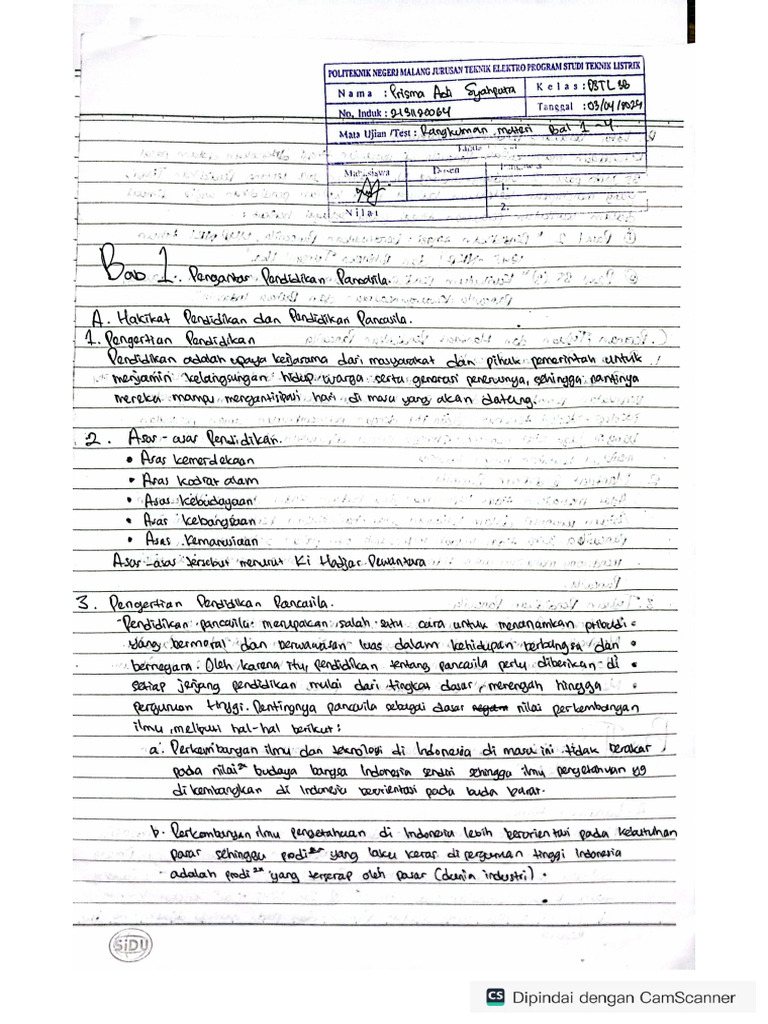 POLITEKNIK NEGERI MALANG JURUSAN TEKNIK ELEKTRO PROGRAM STUDI TEKNIK LISTRIK
Nama : Prisma Adi Syahputra Kelas : D3TL 3B
No. Induk : 2131120064 Tanggal : 03/04/2024
Mata Ujian /Test : Rangkuman materi Bab 1-4
Mahasiswa Dosen
1.
Nilai 2.
Bab 1. Pengantar Pendidikan Pancasila.
A. Hakikat Pendidikan dan Pendidikan Pancasila.
1. Pengertian Pendidikan
Pendidikan adalah upaya kerjasama dari masyarakat dan pihak pemerintah untuk
menjamin kelangsungan hidup warga serta generasi penerusnya, sehingga nantinya
mereka mampu mengantisipasi hari di masa yang akan datang.
2. Asas-asas Pendidikan.
• Asas kemerdekaan
• Asas kodrat alam
• Asas kebudayaan
• Asas kebangsaan
• Asas kemanusiaan
Asas-asas tersebut menurut Ki Hadjar Dewantara
3. Pengertian Pendidikan Pancasila.
Pendidikan pancasila merupakan salah satu cara untuk menanamkan pribadi
yang bermoral dan berwawasan luas dalam kehidupan berbangsa dan
bernegara. Oleh karena itu, pendidikan tentang pancasila perlu diberikan di
setiap jenjang pendidikan mulai dari tingkat dasar, menengah hingga
perguruan tinggi. Pentingnya pancasila sebagai dasar negara nilai perkembangan
ilmu, meliputi hal-hal berikut :
a. Perkembangan ilmu dan teknologi di Indonesia di masa ini tidak berakar
pada nilai2x budaya bangsa Indonesia sendiri sehingga ilmu pengetahuan yg
dikembangkan di Indonesia berorientasi pada buda barat.
b. Perkembangan ilmu pengetahuan di Indonesia lebih berorientasi pada kebutuhan
pasar sehingga prodi2x yang laku keras di perguruan tinggi Indonesia
adalah prodi2x yang terserap oleh pasar (dunia industri).
SiDU
CS Dipindai dengan CamScanner